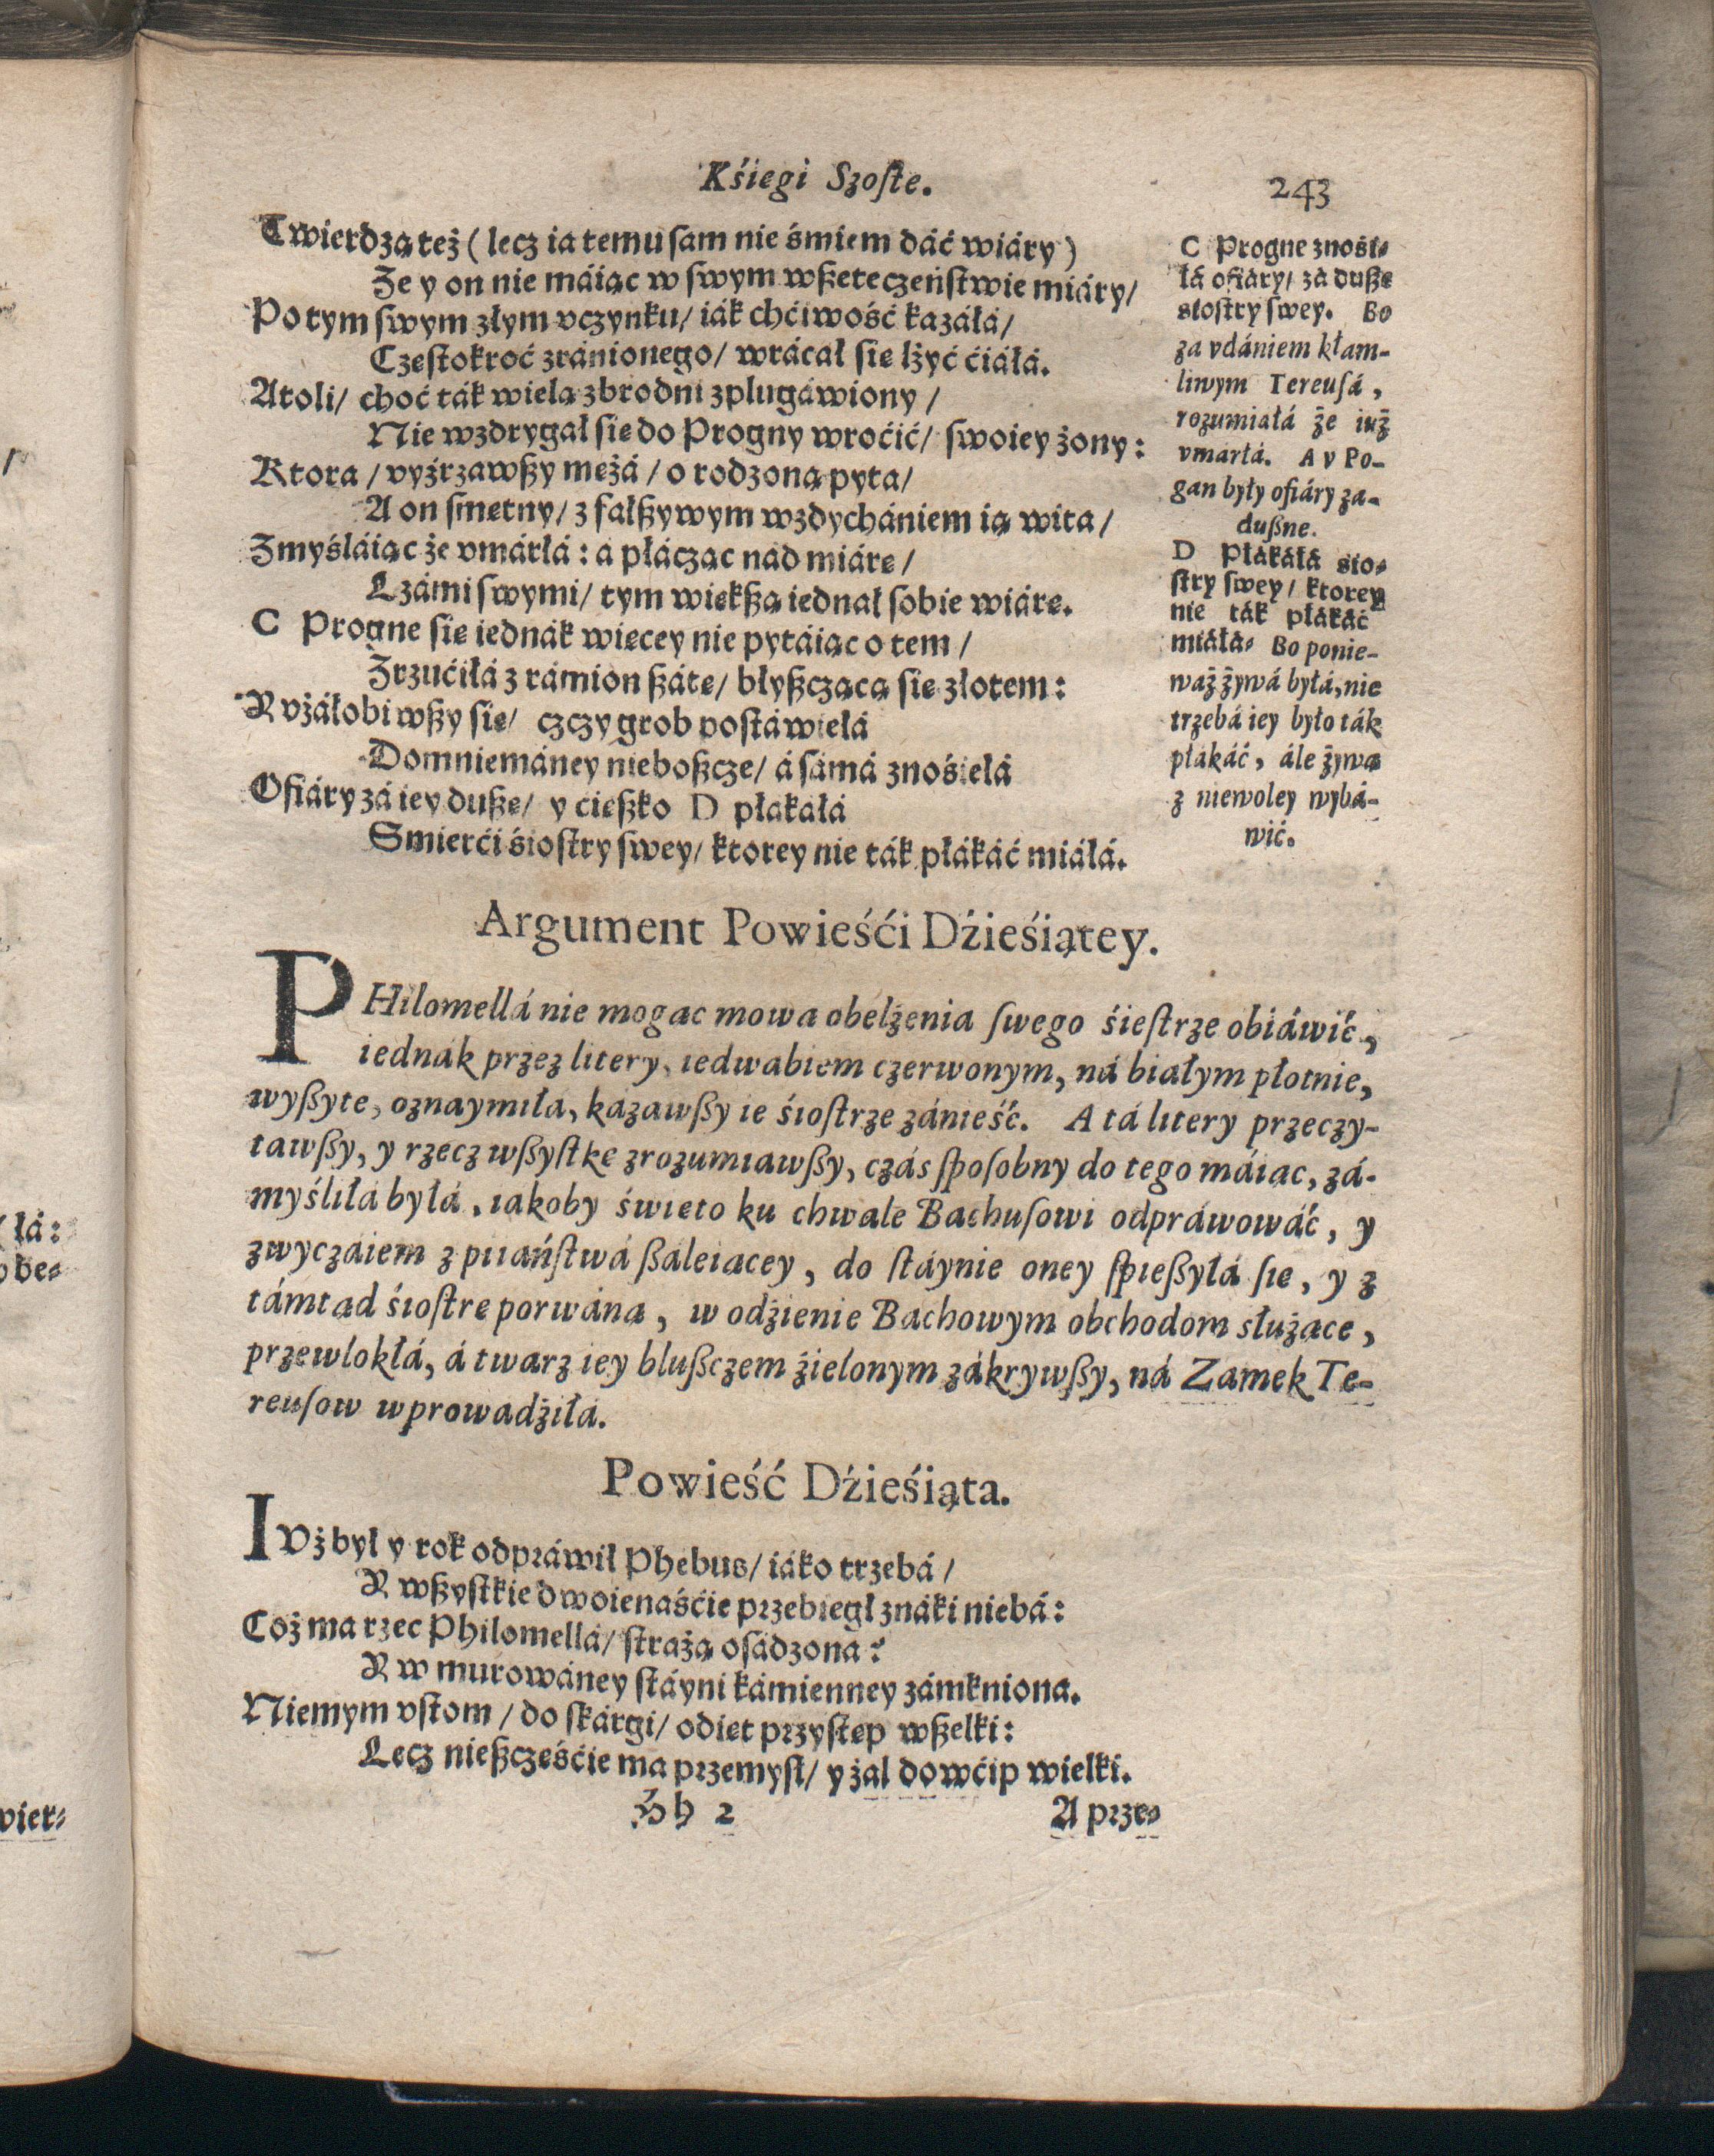 Kśiegi Szoſte.
243
Twierdzą też ( lecz ia temu ſam nie śmiem dáć wiáry )
Że y on nie máiąc w ſwym wßeteczeńſtwie miáry/
Po tym ſwym złym vczynku/ iák chćiwość kazáłá/
Czeſtokroć zránionego/ wrácał ſie lżyć ćiáłá.
Atoli/ choć ták wielą zbrodni zplugáwiony /
Nie wzdrygał ſie do Progny wroćić/ ſwoiey żony:
Ktora / vyźrzawßy meżá / o rodzoną pyta/
A on ſmetny/ z fałßywym wzdychániem ią wita /
Zmyśláiąc że vmárłá: a płácząc nád miáre /
Łzámi ſwymi/ tym wiekßą iednał ſobie wiáre.
C Progne ſie iednák wiecey nie pytáiąc o tem /
Zrzućiłá z rámion ßáte/ błyßczącą ſie złotem:
Y vżáłobiwßy ſie/ czczy grob poſtáwiełá
Domniemáney nieboßcze/ á ſámá znośiełá
Ofiáry zá iey duße/ y cießko D płakáłá
Smierći śioſtry ſwey/ ktorey nie ták płákáć miáłá.
C Progne znośi-
łá ofiáry/ zá duße
sioſtry ſwey. Bo
za vdániem kłam-
liwym Tereuſá ,
rozumiałá że iuż
vmarłá. A v Po-
gan były ofiáry za-
dußne.
D Płákáłá sio-
ſtry ſwey/ ktorey
nie ták płákáć
miáłá. Bo ponie-
waż żywá byłá, nie
trzebá iey było ták
płákáć, ále żywą
z niewoley wybá-
wić.
Argument Powieśći Dźieśiątey.
PHilomellá nie mogac mowa obelżenia ſwego śieſtrze obiáwić,
iednák przez litery, iedwabiem czerwonym, ná białym płotnie,
wyßyte, oznaymiła, kazawßy ie śioſtrze zánieść. A tá litery przeczy-
tawßy, y rzecz wßyſtkę zrozumiawßy, czás ſpoſobny do tego máiac, zá-
myśliłá byłá, iakoby świeto ku chwale Bachuſowi odpráwowáć, y
zwyczáiem z piiańſtwá ßaleiacey, do ſtáynie oney ſpießyłá ſie, y z
támtad śioſtre porwána, w odżienie Bachowym obchodom służace,
przewlokłá, á twarz iey blußczem źielonym zákrywßy, ná Zamek Te-
reuſow wprowadźiłá.
Powieść Dźieśiąta.
IVż był y rok odpráwił Phebus/ iáko trzebá /
Y wßyſtkie dwoienaśćie przebiegł znáki niebá:
Coż ma rzec Philomellá/ ſtrażą oſádzona?
Y w murowáney ſtáyni kámienney zámkniona.
Niemym vſtom / do ſkárgi/ odiet przyſtep wßelki:
Lecz nießcześćie ma przemyſł/ y żal dowćip wielki.
Hh 2
A prze-
łá:
be-
wier-